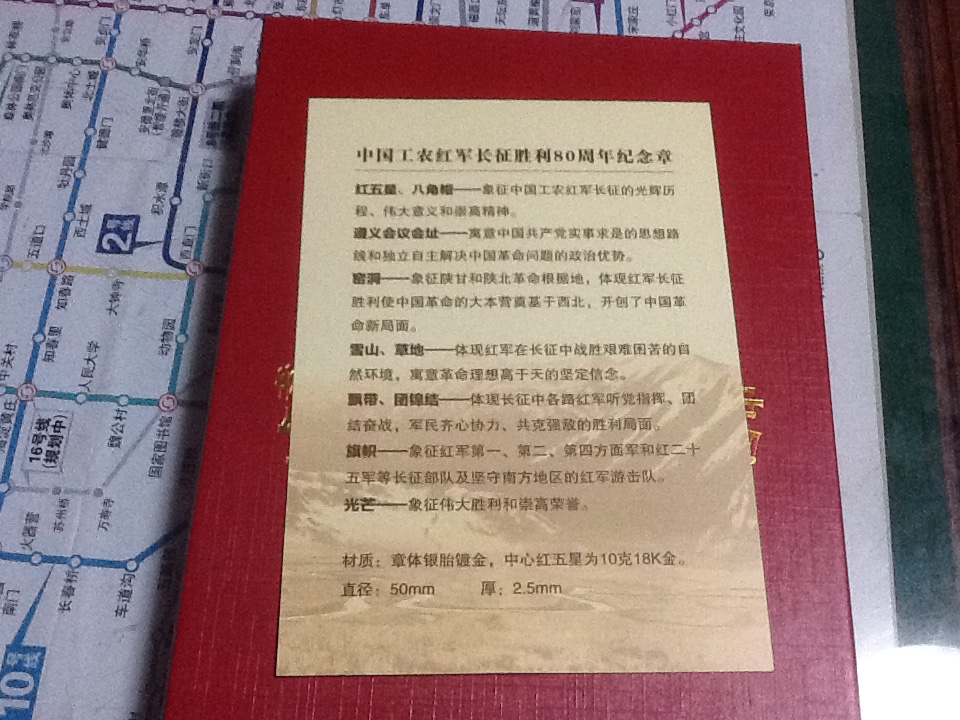 中国工农红军长征胜利80周年纪念章
红五星、八角帽——象征中国工农红军长征的光辉历
程、伟大意义和崇高精神。
遵义会议会址——寓意中国共产党实事求是的思想路
线和独立自主解决中国革命问题的政治优势。
窑洞——象征陕甘和陕北革命根据地，体现红军长征
胜利使中国革命的大本营奠基于西北，开创了中国革
命新局面。
雪山、草地——体现红军在长征中战胜艰难困苦的自
然环境，寓意革命理想高于天的坚定信念。
飘带、团锦结——体现长征中各路红军听党指挥、团
结奋战，军民齐心协力、共克强敌的胜利局面。
旗帜——象征红军第一、第二、第四方面军和红二十
五军等长征部队及坚守南方地区的红军游击队。
光芒——象征伟大胜利和崇高荣誉。
材质：章体银胎镀金，中心红五星为10克18K金。
直径：50mm 厚：2.5mm
2号线
16号线
(规划中)
10号线
北土城
健德门
牡丹园
西土城
积水潭
新街口
西直门
五道口
知春路
大钟寺
知春里
动物园
中关村
人民大学
海淀黄庄
魏公村
国家图书馆
苏州桥
万寿寺
火器营
长春桥
车道沟
安华桥
安德里北街
鼓楼大街
奥体中心